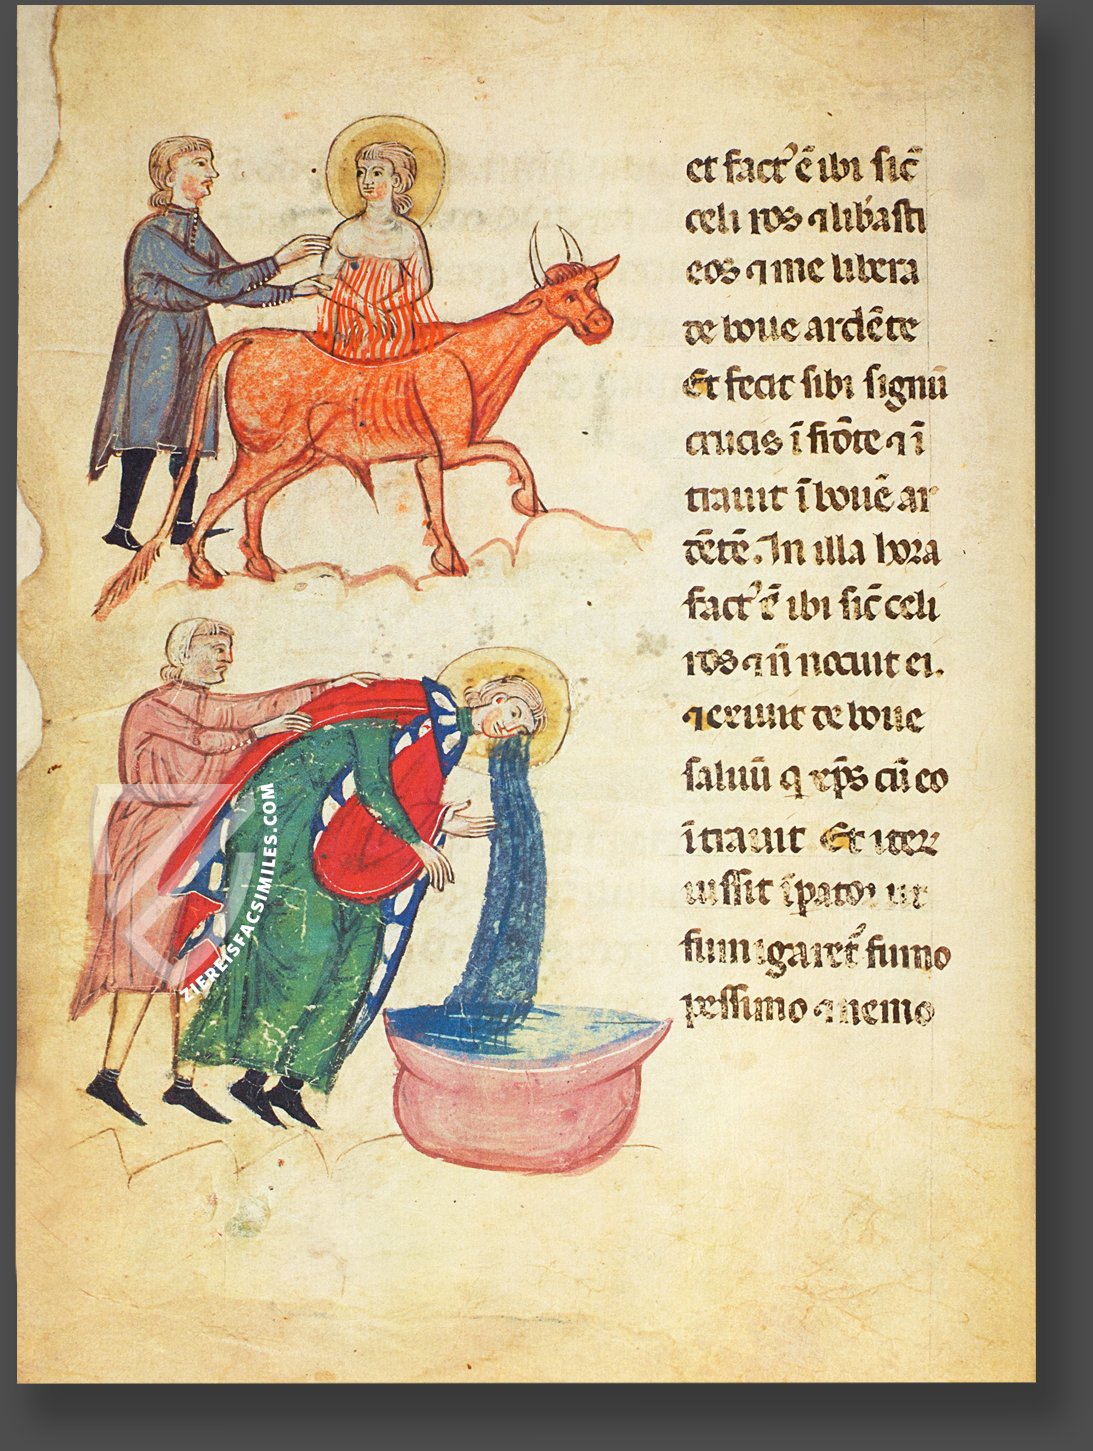 et fact᾽ ē ibi sic̄
celi ros ⁊ libasti
eos ⁊ me libera
de boue ardēte
Et fecit sibi signū
crucis ī frōte ⁊ ī
trauit ī bouē ar
dētē. In illa hora
fact᾽ ē ibi sic̄ celi
ros ⁊ n̄ nocuit ei.
⁊ exiuit de boue
saluū q xp̄s cū eo
ītrauit Et iter
iussit īpator ut
fumigaret᾽ fumo
pessimo ⁊ nemo
ZIEREISFACSIMILES.COM